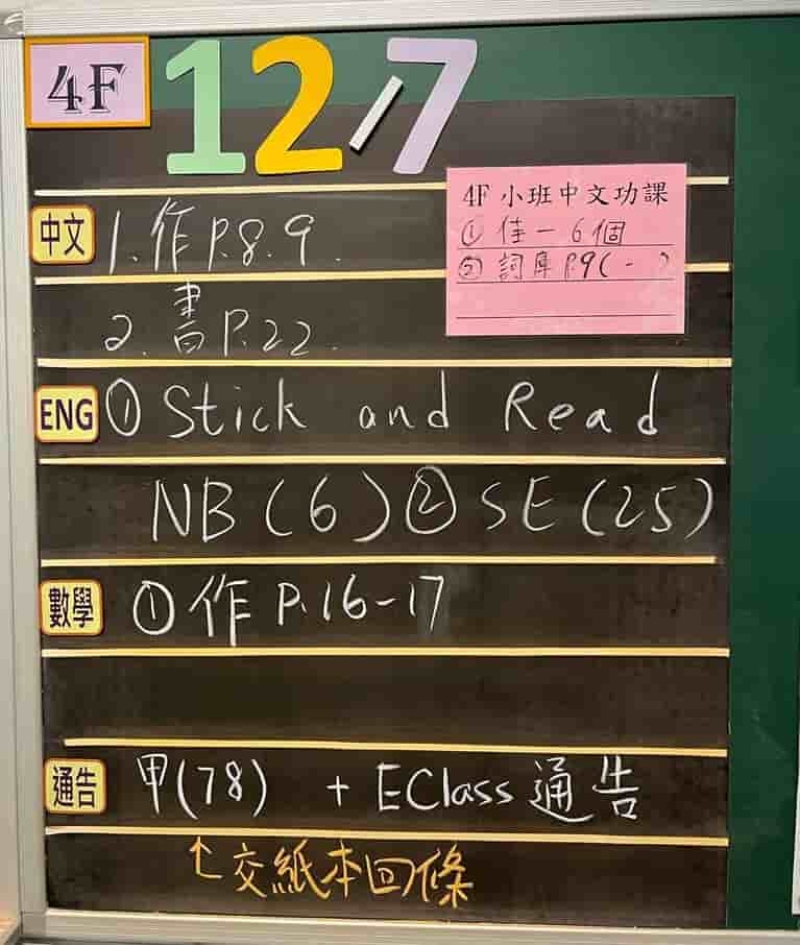 4F 12/7
中文 1. 作 P.8.9.
4F 小班中文功課
① 佳一 6個
② 詞庫 P.9(-)
2. 書 P.22.
ENG ① Stick and Read
NB (6) ② SE (25)
數學 ① 作 P.16-17
通告 甲(78) + EClass 通告
↑交紙本回條